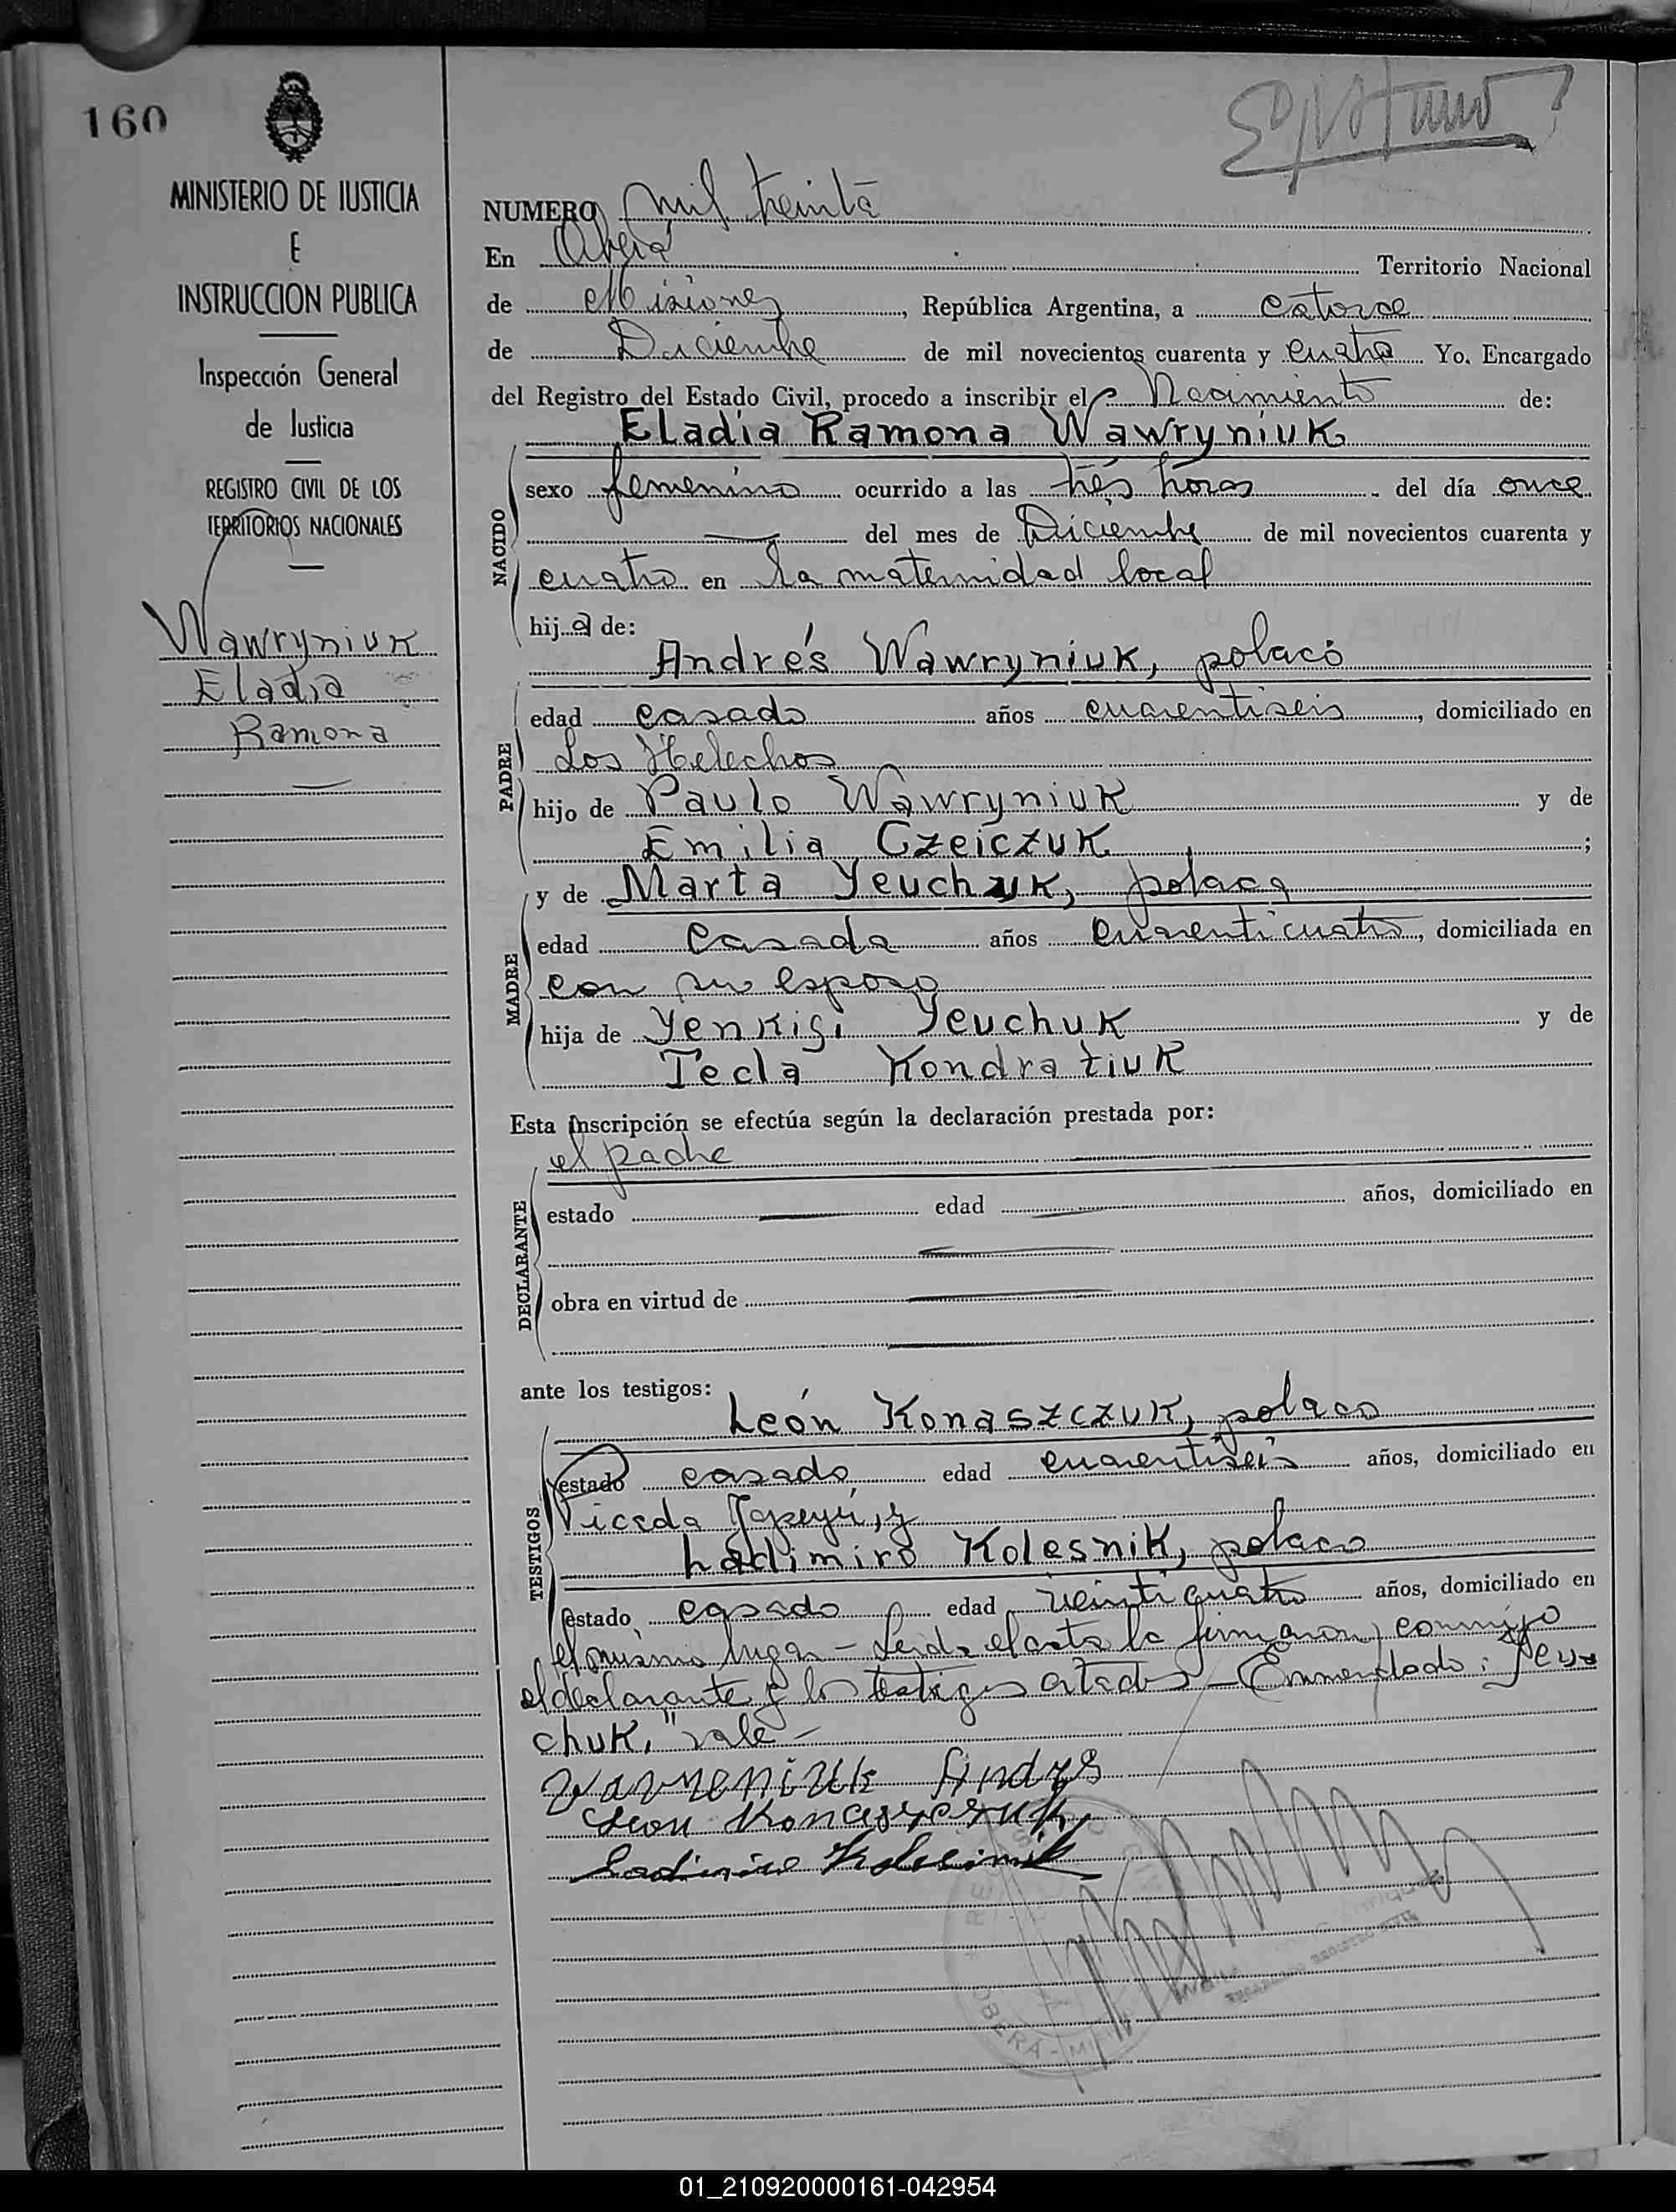 160
MINISTERIO DE JUSTICIA
E
INSTRUCCION PUBLICA
Inspección General
de Justicia
REGISTRO CIVIL DE LOS
TERRITORIOS NACIONALES
Wawryniuk
Eladia
Ramona
NUMERO mil treinta
En Oberá Territorio Nacional
de Misiones, República Argentina, a catorce
de Diciembre de mil novecientos cuarenta y cuatro Yo. Encargado
del Registro del Estado Civil, procedo a inscribir el Nacimiento de:
Eladia Ramona Wawryniuk
NACIDO
sexo femenino ocurrido a las tres horas del día once
del mes de Diciembre de mil novecientos cuarenta y
cuatro en la maternidad local
hija de:
Andrés Wawryniuk, polaco
PADRE
edad casado años cuarentiseis, domiciliado en
Los Helechos
hijo de Paulo Wawryniuk y de
Emilia Czeiczuk ;
MADRE
y de Marta Yeuchuk, polaca
edad casada años cuarenticuatro, domiciliada en
con su esposo
hija de Yenkigi Yeuchuk y de
Tecla Kondratiuk
Esta inscripción se efectúa según la declaración prestada por:
el padre
DECLARANTE
estado edad años, domiciliado en
obra en virtud de
ante los testigos:
León Konaszczuk, polaco
TESTIGOS
estado casado edad cuarentiseis años, domiciliado en
Picada Yapeyú, y
Ladimiro Kolesnik, polaco
estado casado edad veinticuatro años, domiciliado en
el mismo lugar - Leida el acta la firmaron conmigo
el declarante y los testigos citados - Enmendado: Yeu-
chuk," vale -
Wawreniuk Andres
Leon Konaszczuk
Ladimiro Kolesnik
OBERÁ - MI
01_210920000161-042954